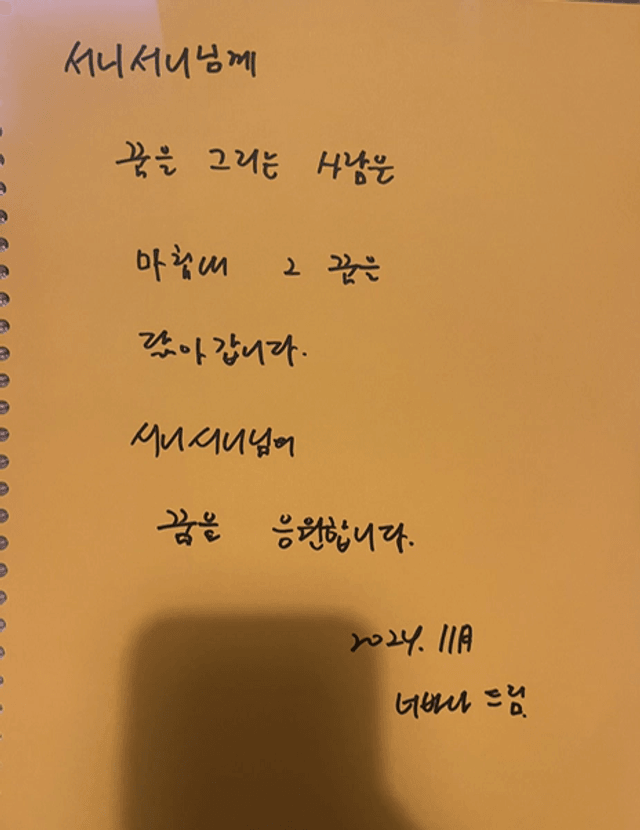 서니서니님께
꿈을 그리는 사람은
마침내 그 꿈을
닮아 갑니다.
서니서니님의
꿈을 응원합니다.
2024. 11月
너바나 드림.